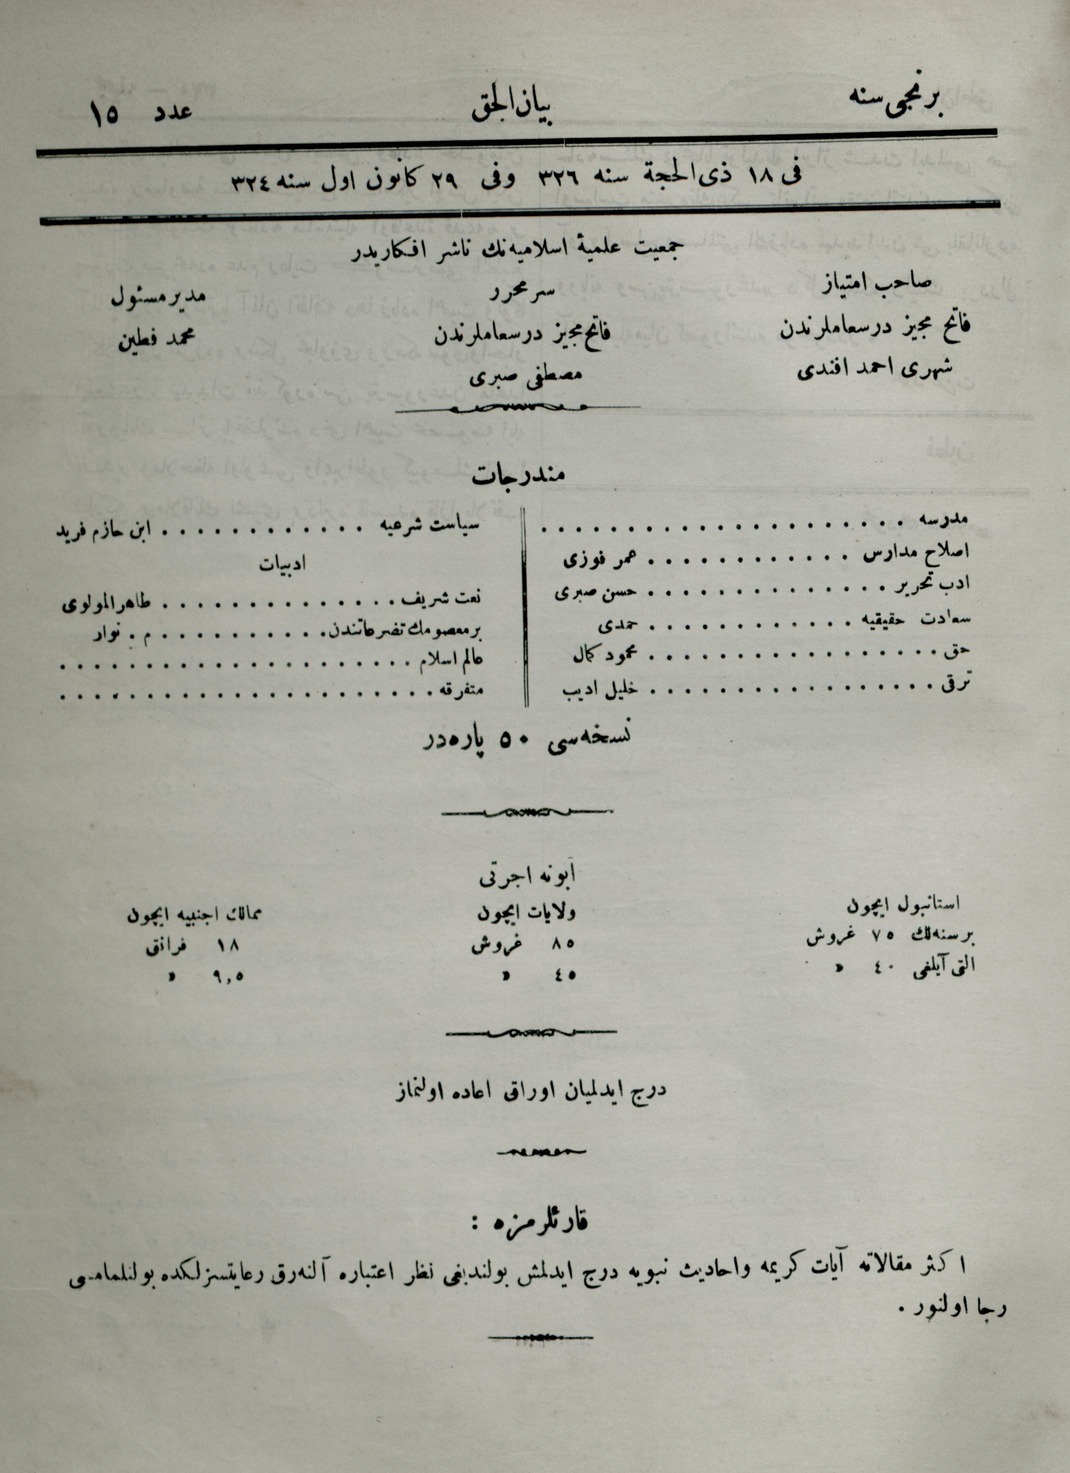 برنجی سنه
بیان الحق
عدد ۱۵
فی ۱۸ ذی الحجة سنه ۳۲٦ وفی ۲۹ كانون اول سنه ۳۲٤
جمعیت علمیهٔ اسلامیه نك ناشر افكاریدر
صاحب امتیاز
فاتح مجیز درسعاملرندن
شهری احمد افندی
سر محرر
فاتح مجیز درسعاملرندن
مصطفی صبری
مدیر مسئول
محمد فطین
مندرجات
مدرسه . . . . . . . . . . . . . . . . . . . .
اصلاح مدارس . . . . . . . . . . . عمر فوزی
ادب تحریر . . . . . . . . . . . . . حسن صبری
سعادت حقیقیه . . . . . . . . . . . حمدی
حق . . . . . . . . . . . . . . . . محمود كمال
ترقی . . . . . . . . . . . . . . . . خلیل ادیب
سیاست شرعیه . . . . . . . . . . . . ابن حازم فرید
ادبیات
نعت شریف . . . . . . . . . . . . . . طاهر المولوی
بر معصومك تضرعاتندن . . . . . . . . . . . م . نوار
عالم اسلام . . . . . . . . . . . . . . . . . . . .
متفرقه . . . . . . . . . . . . . . . . . . . . .
نسخه سی ۵۰ پاره در
آبونه اجرتی
استانبول ایچون
بر سنه لك ۷۵ غروش
التی آیلغی ٤۰ »
ولایات ایچون
۸۵ غروش
٤۵ »
ممالك اجنبیه ایچون
۱۸ فرانق
۹,۵ »
درج ایدلمیان اوراق اعاده اولنماز
قارئلرمزه :
اكثر مقالاته آیات كریمه واحادیث نبویه درج ایدلمش بولندیغی نظر اعتباره آلنه رق رعایتسزلكده بولنلمامسی
رجا اولنور .